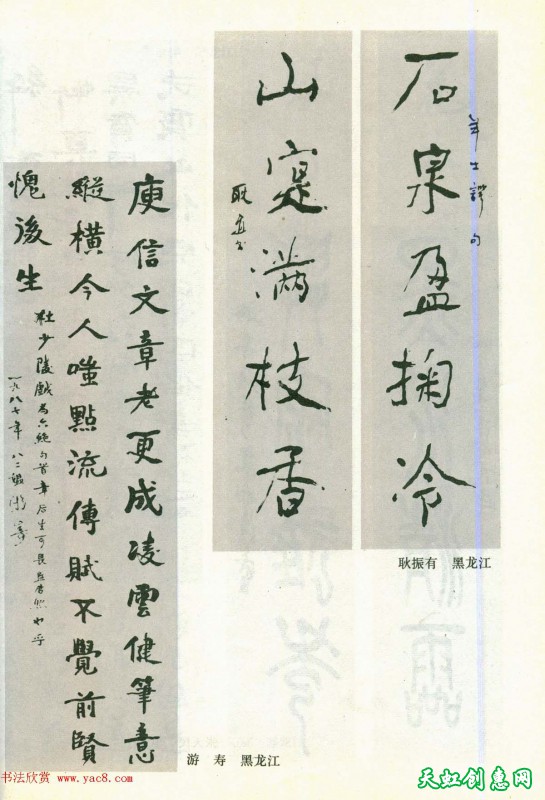 石泉盈掬冷
羊士諤句
山寔滿枝香
耿振有 黑龙江
庾信文章老更成凌雲健筆意
縱橫今人嗤點流傳賦不覺前賢
愧後生
杜少陵戲為六絕句首章后生可畏
一九八七年八二叟游壽
游 寿 黑龙江
书法欣赏 www.yac8.com
天虹创意网